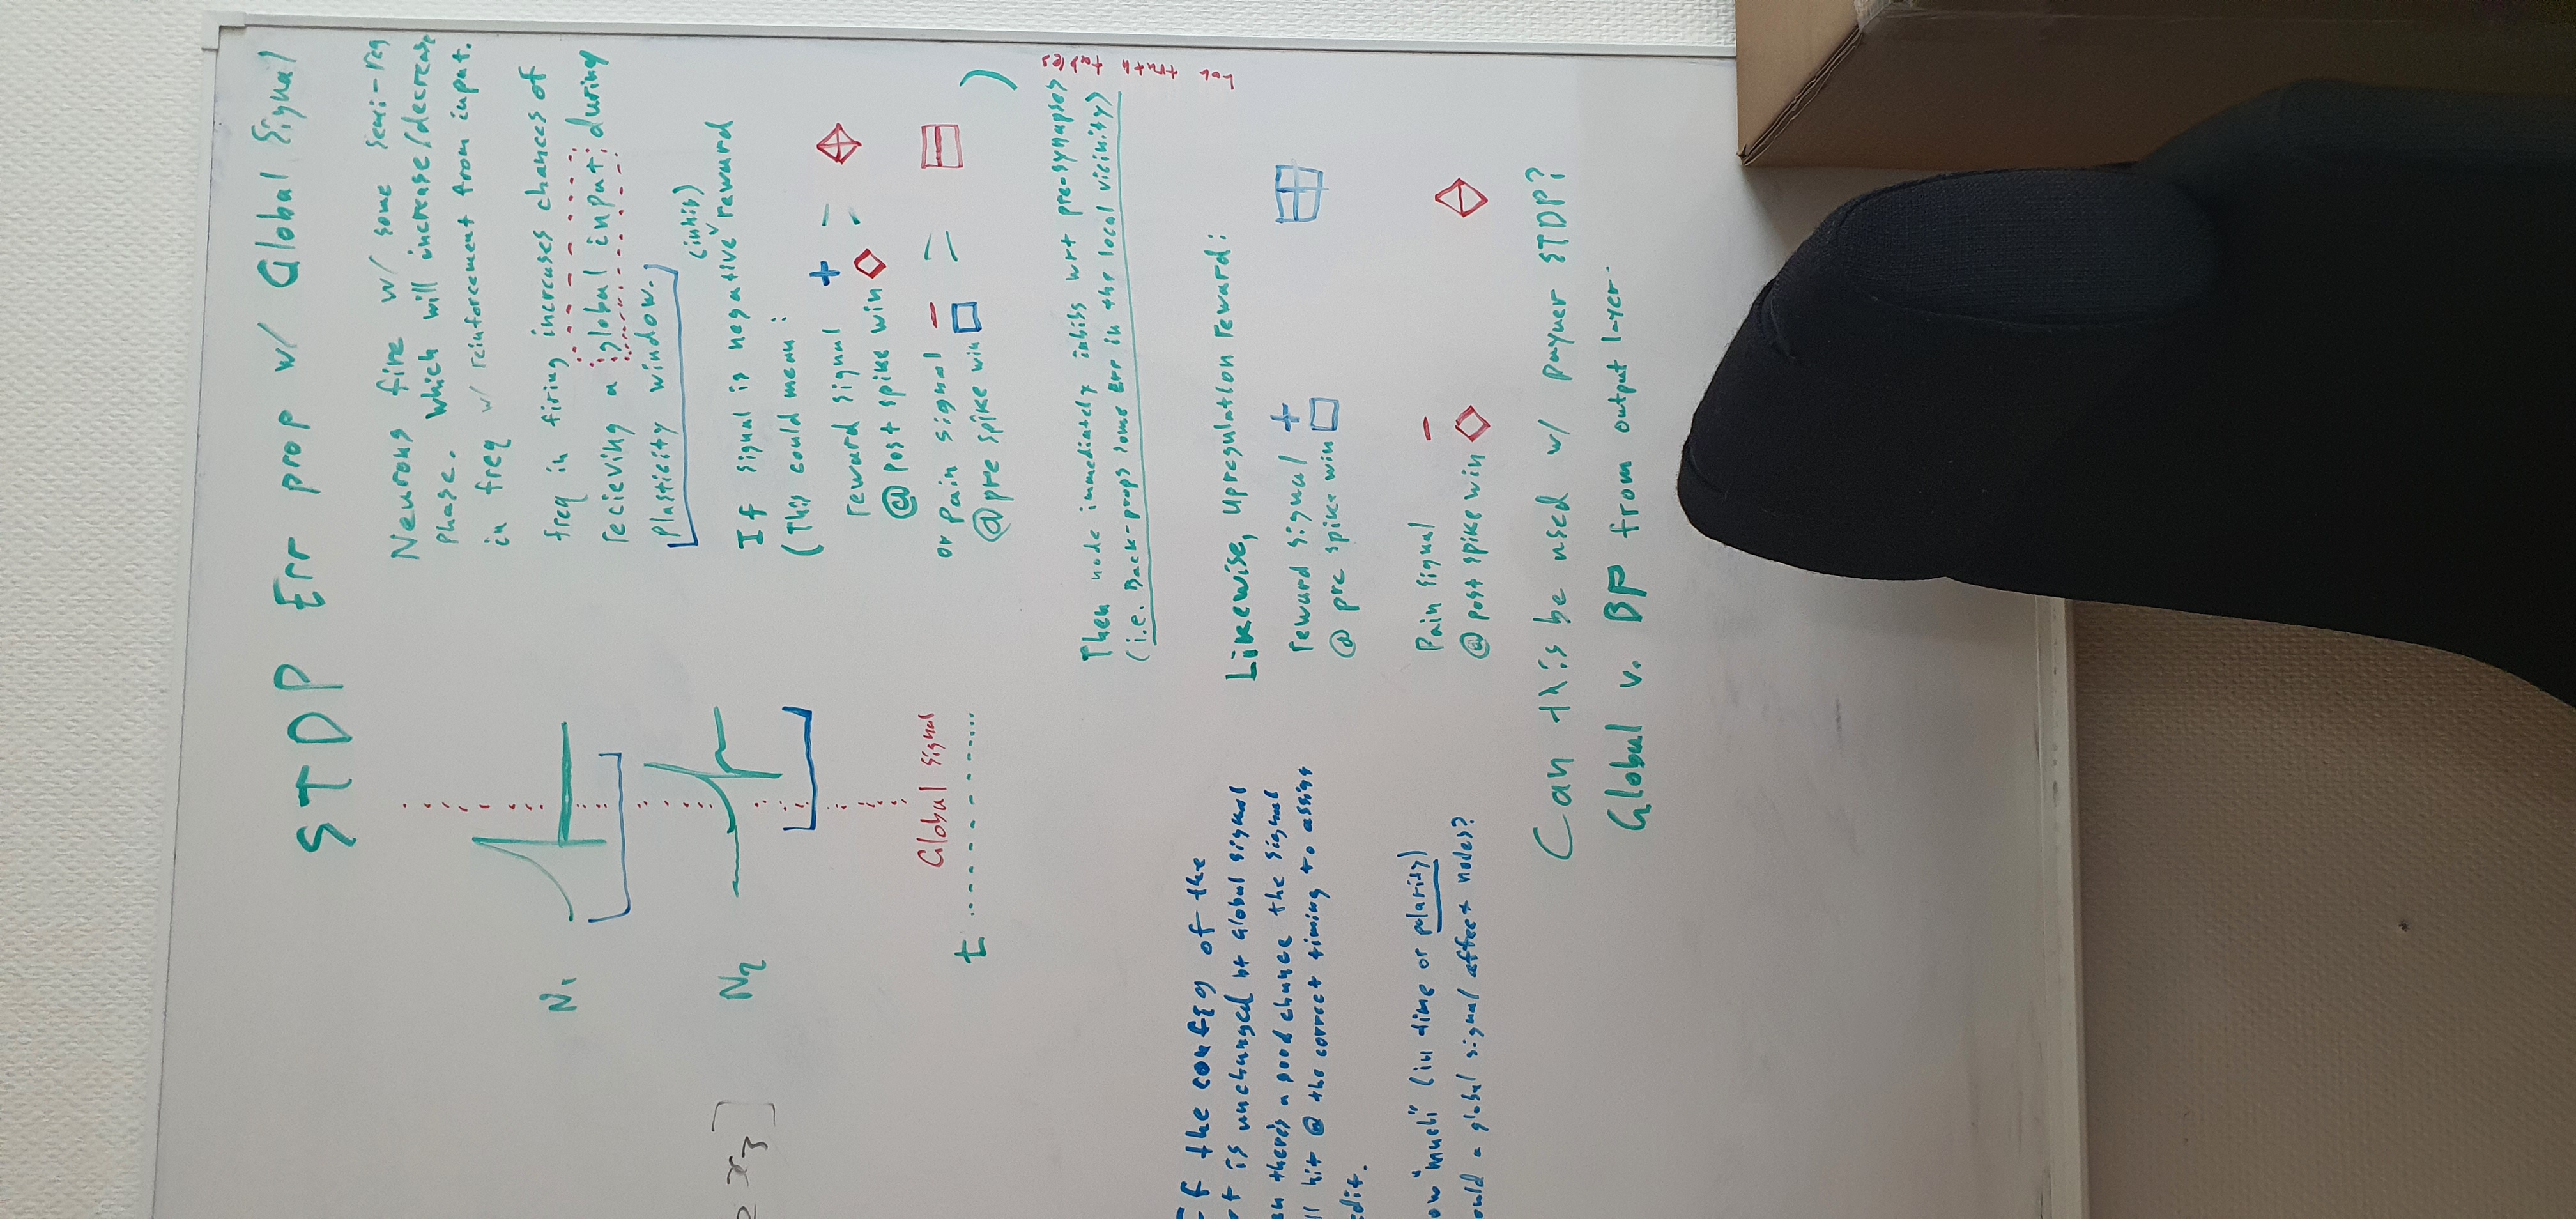 STDP Err prop w/ Global Signal
Neurons fire w/ some semi-reg
phase. Which will increase/decrease
in freq w/ reinforcement from input.
freq in firing increases chances of
recieving a global input during
Plasticity window.
(inhib)
If signal is negative ˅ reward
(This could mean:
reward signal + =
@ post spike win
or Pain signal - =
@ pre spike win
)
Then node immediately inhibs wrt pre-synapses
(i.e. Back-props some Err in the local vicinity)
Likewise, upregulation reward:
reward signal +
@ pre spike win
Pain signal -
@ post spike win
truth tables
N1
N2
Global Signal
t
x3]
If the config of the
is unchanged bt global signal
there's a good chance the signal
hit @ the correct timing to assign
"much" (in time or polarity)
a global signal affect nodes?
Can this be used w/ payuer STDP?
Global v. BP from output layer.